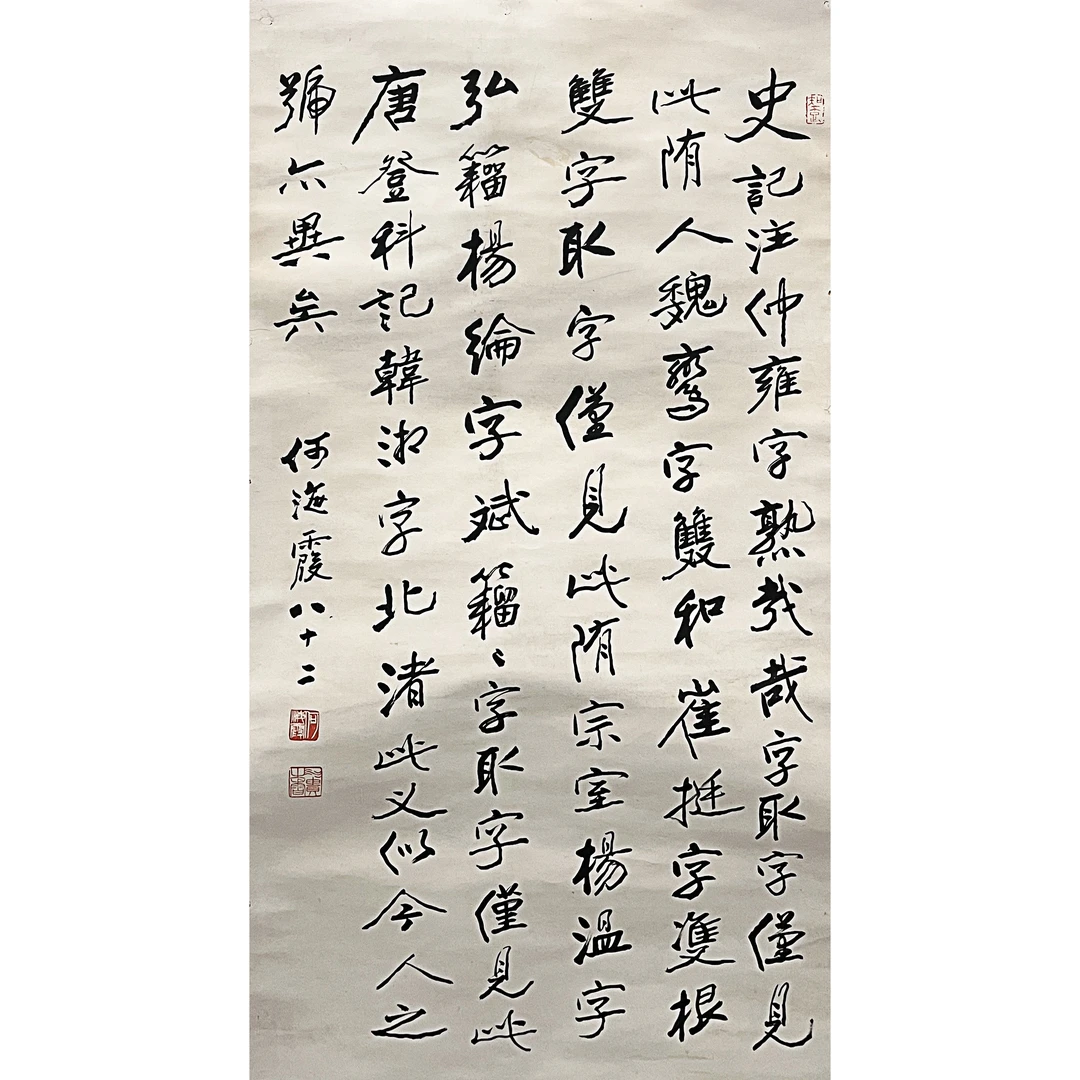 史記注仲雍字熟哉哉字取字僅見
此隋人魏鸞字雙和崔挺字雙根
雙字取字僅見此隋宗室楊溫字
弘籀楊綸字斌籀籀字取字僅見此
唐登科記韓湘字北渚此又似今人之
號亦異矣
何海霞八十二